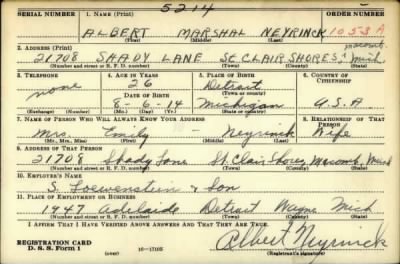 5214
SERIAL NUMBER 1. NAME (Print) ORDER NUMBER
ALBERT MARSHAL NEYRINCK 1053A
(First) (Middle) (Last)
2. ADDRESS (Print) macomb
21708 SHADY LANE ST CLAIR SHORES, Mich
(Number and street or R. F. D. number) (Town) (County) (State)
3. TELEPHONE 4. AGE IN YEARS 5. PLACE OF BIRTH 6. COUNTRY OF CITIZENSHIP
none 26 Detroit
DATE OF BIRTH (Town or county)
8-6-14 Michigan U.S.A
(Exchange) (Number) (Mo.) (Day) (Yr.) (State or country)
7. NAME OF PERSON WHO WILL ALWAYS KNOW YOUR ADDRESS 8. RELATIONSHIP OF THAT PERSON
Mrs. Emily Neyrinck Wife
(Mr., Mrs., Miss) (First) (Middle) (Last)
9. ADDRESS OF THAT PERSON
21708 Shady Lane St. Clair Shores, Macomb, Mich
(Number and street or R. F. D. number) (Town) (County) (State)
10. EMPLOYER'S NAME
S. Loewenstein & Son
11. PLACE OF EMPLOYMENT OR BUSINESS
1947 Adelaide Detroit Wayne Mich
(Number and street or R. F. D. number) (Town) (County) (State)
I AFFIRM THAT I HAVE VERIFIED ABOVE ANSWERS AND THAT THEY ARE TRUE.
REGISTRATION CARD
D. S. S. Form 1 (over) 16-17105 Albert Neyrinck
(Registrant's signature)